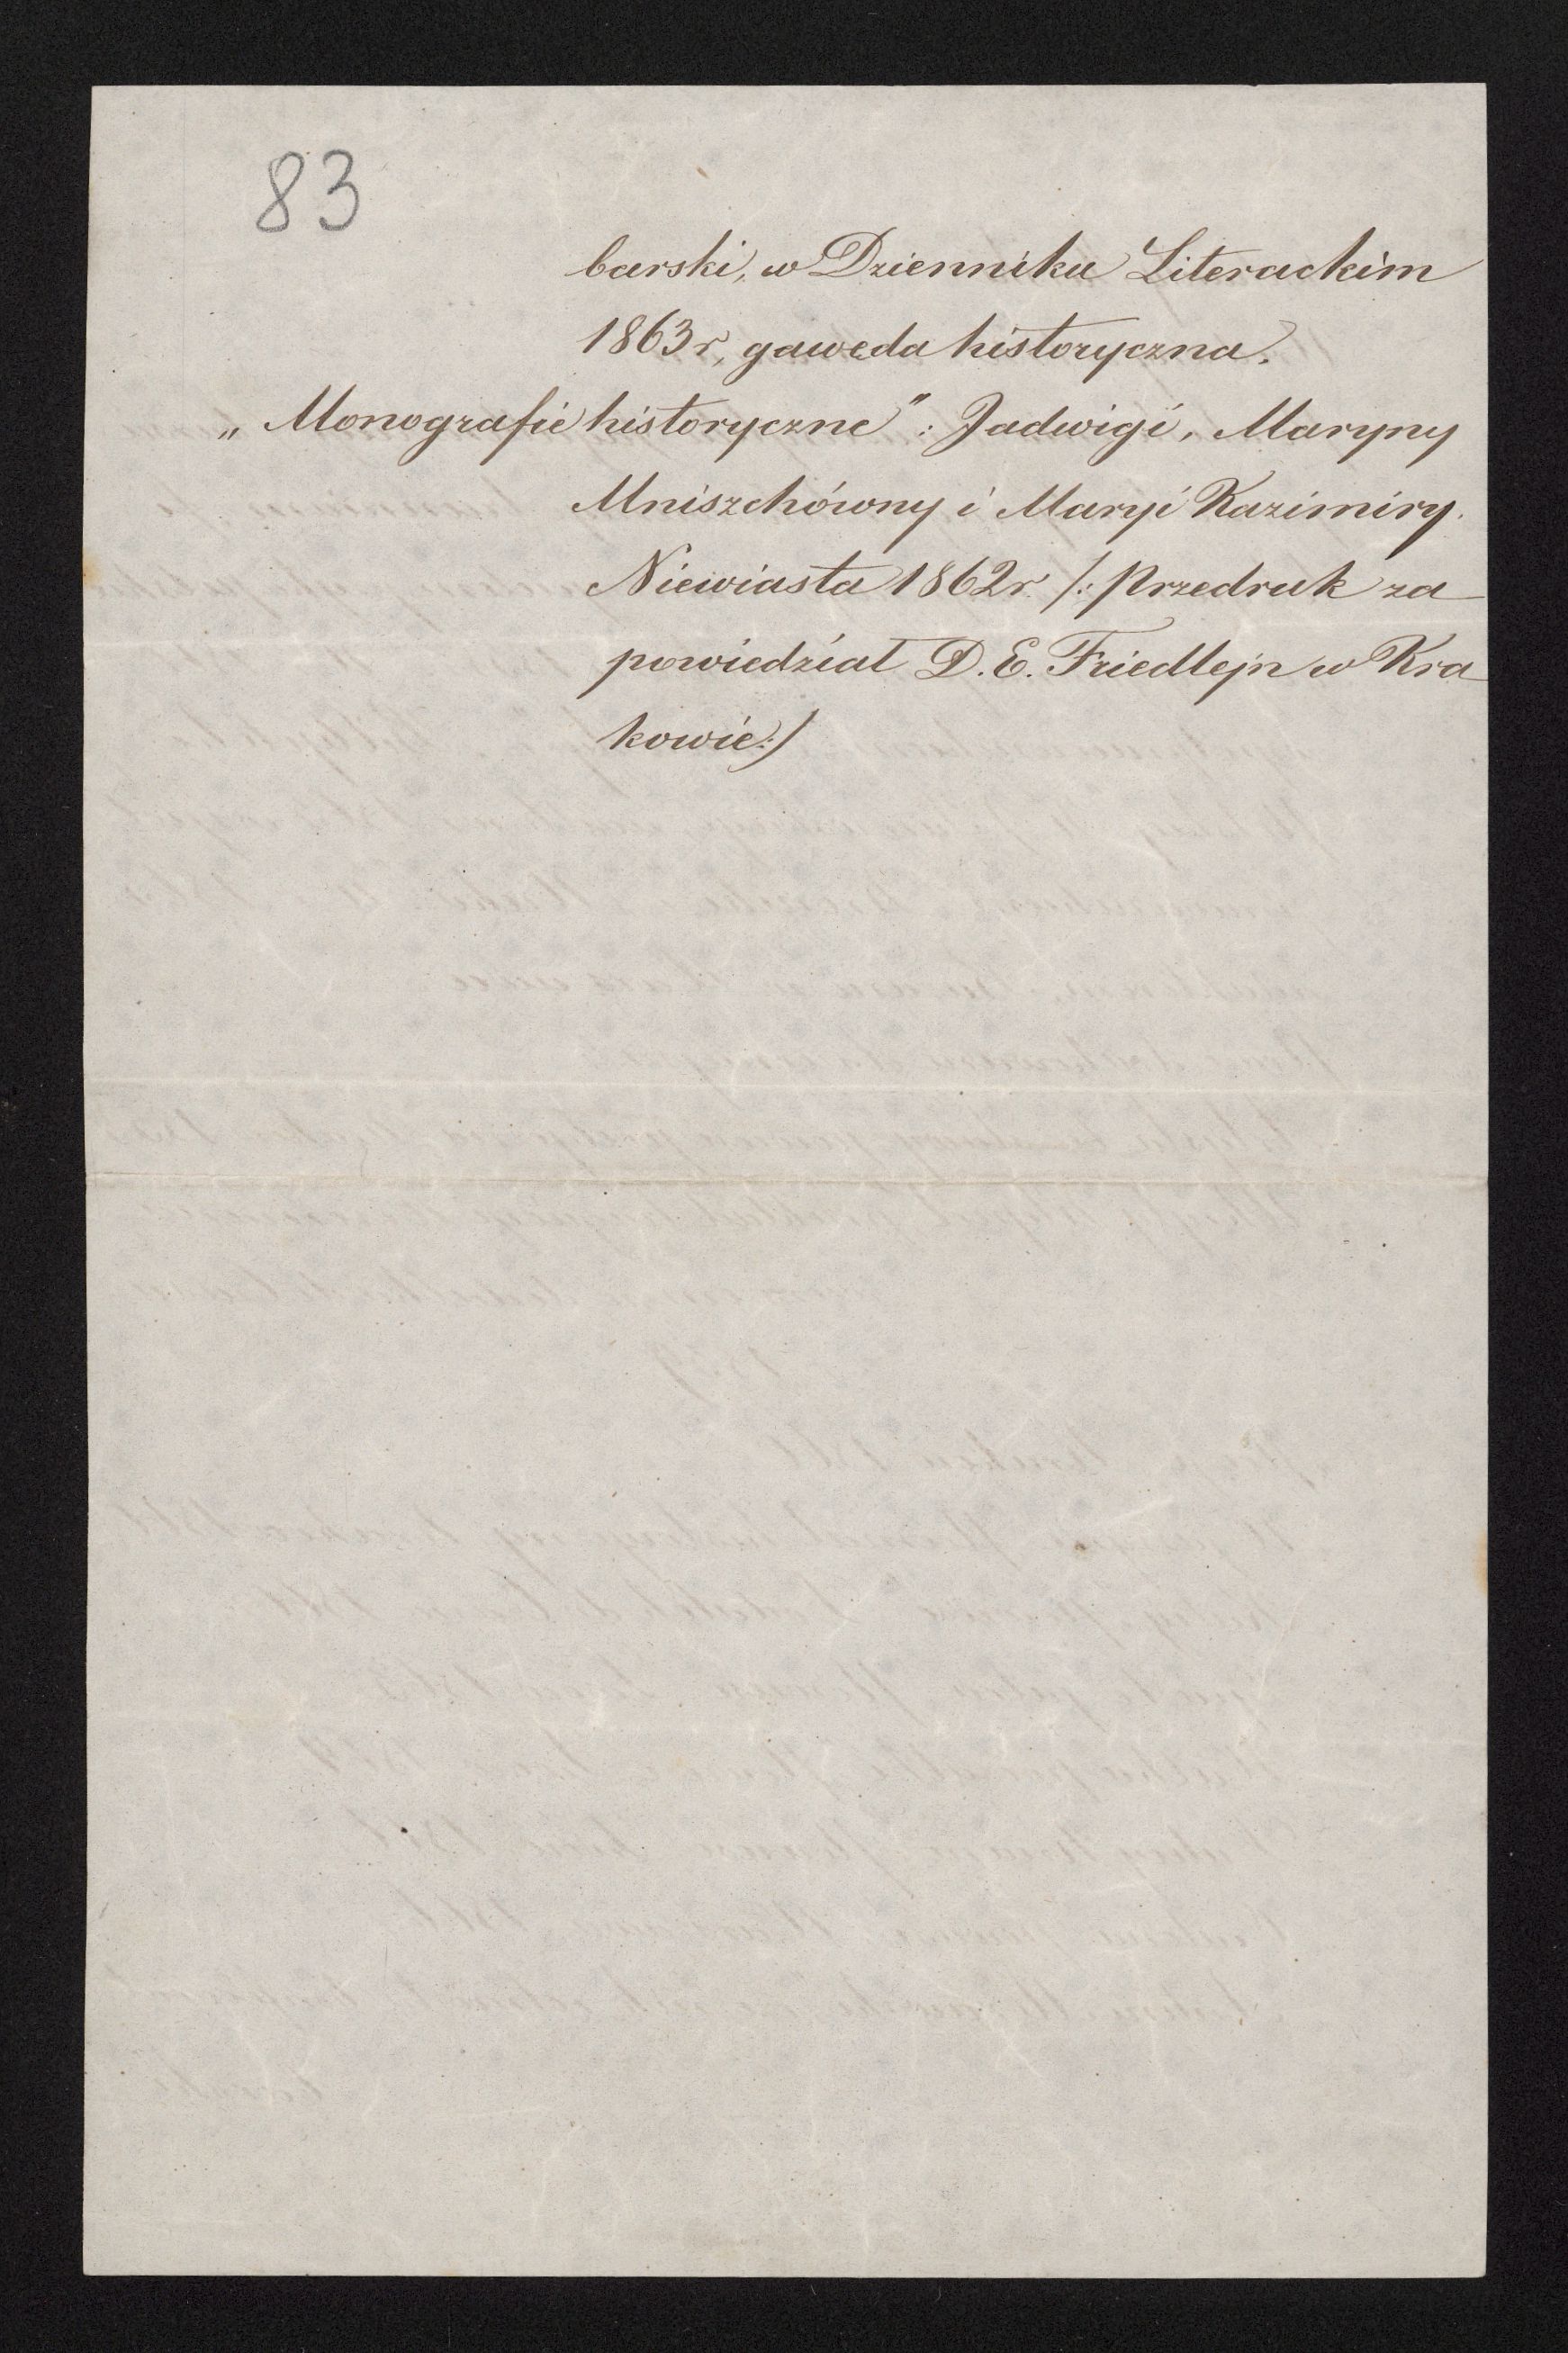 83
barski, w Dzienniku Literackim
1863 r, gawęda historyczna.
„Monografie historyczne": Jadwigi, Maryny
Mniszchówny i Maryi Kazimiry.
Niewiasta 1862 r. /: Przedruk za
powiedział D. E. Friedlejn w Kra
kowie :/